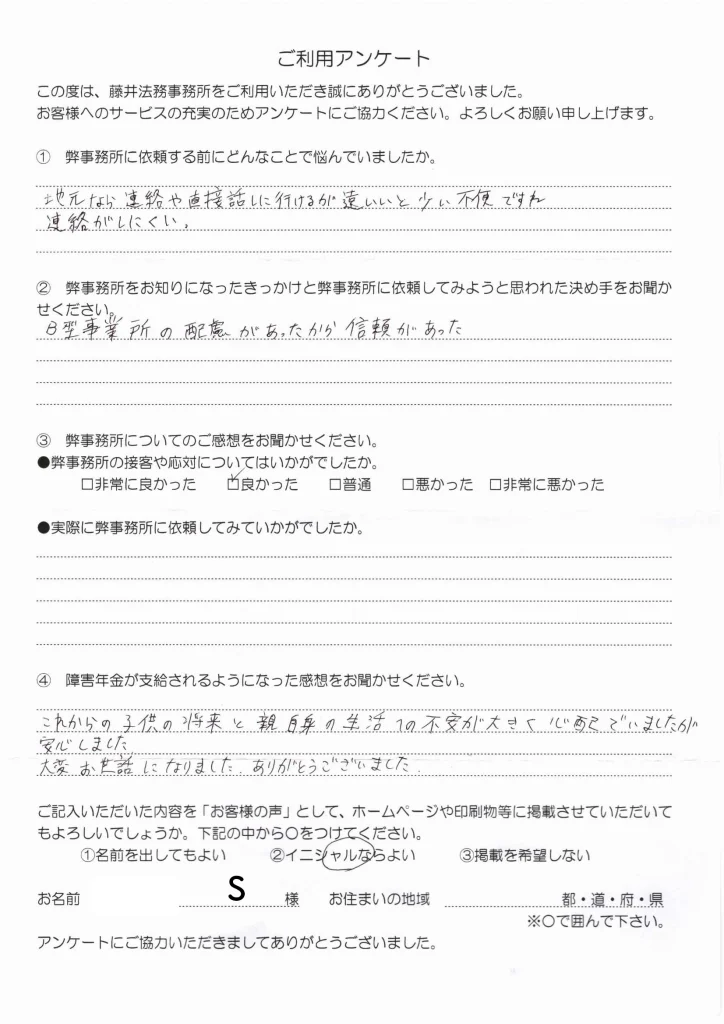 ご利用アンケート
この度は、藤井法務事務所をご利用いただき誠にありがとうございました。
お客様へのサービスの充実のためアンケートにご協力ください。よろしくお願い申し上げます。
① 弊事務所に依頼する前にどんなことで悩んでいましたか。
地元なら連絡や直接話しに行けるが遠いいと少い不便ですね
連絡がしにくい。
② 弊事務所をお知りになったきっかけと弊事務所に依頼してみようと思われた決め手をお聞か
せください。
B型事業所の配慮があったから信頼があった
③ 弊事務所についてのご感想をお聞かせください。
●弊事務所の接客や応対についてはいかがでしたか。
□非常に良かった □良かった □普通 □悪かった □非常に悪かった
●実際に弊事務所に依頼してみていかがでしたか。
④ 障害年金が支給されるようになった感想をお聞かせください。
これからの子供の将来と親自身の生活への不安が大きく心配でいましたが
安心しました
大変お世話になりました。ありがとうございました。
ご記入いただいた内容を「お客様の声」として、ホームページや印刷物等に掲載させていただいて
もよろしいでしょうか。下記の中から○をつけてください。
①名前を出してもよい ②イニシャルならよい ③掲載を希望しない
お名前 S 様 お住まいの地域 都・道・府・県
※○で囲んで下さい。
アンケートにご協力いただきましてありがとうございました。